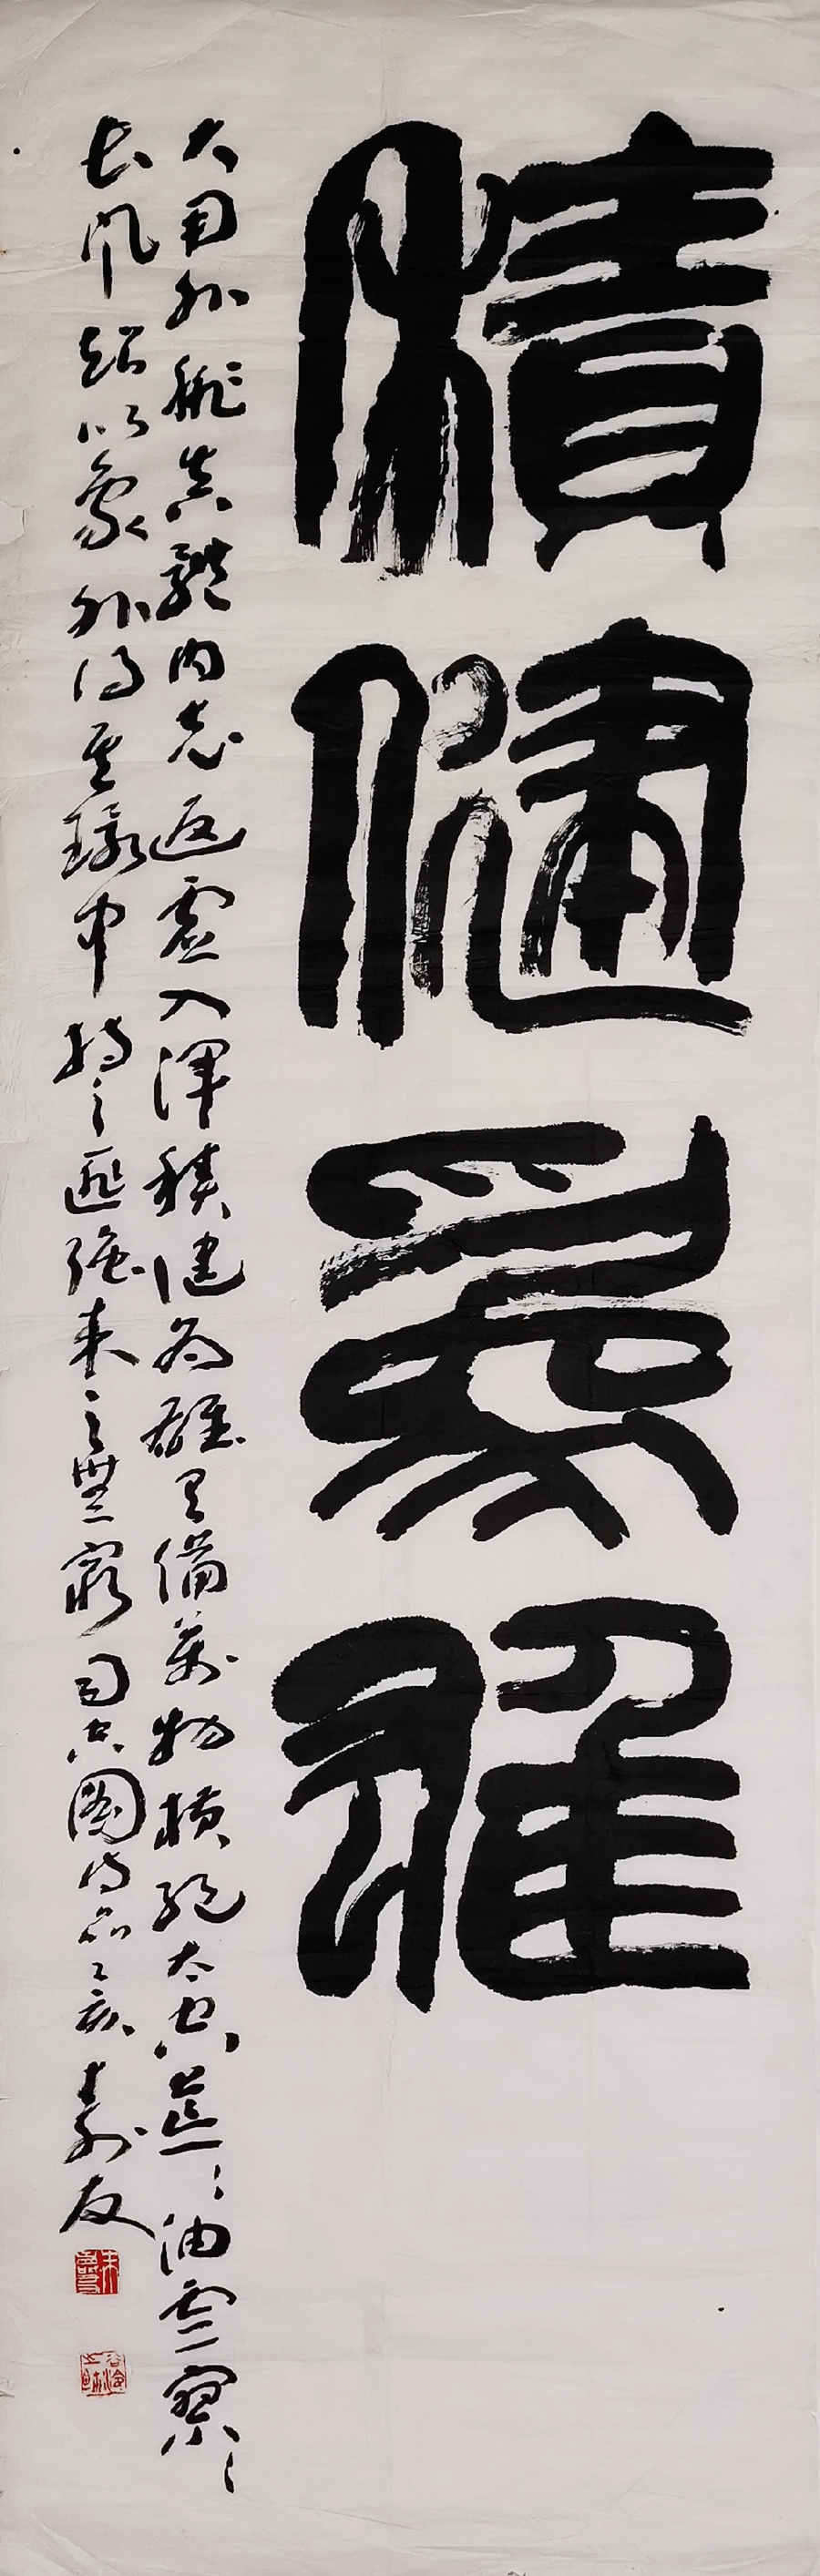 積健為雄
大用外腓真體內充返虛入渾積健為雄具備萬物橫絕太空荒〻油雲寥〻
長風超以象外得其環中持之匪強來之無窮司空圖詩品乙亥壽友